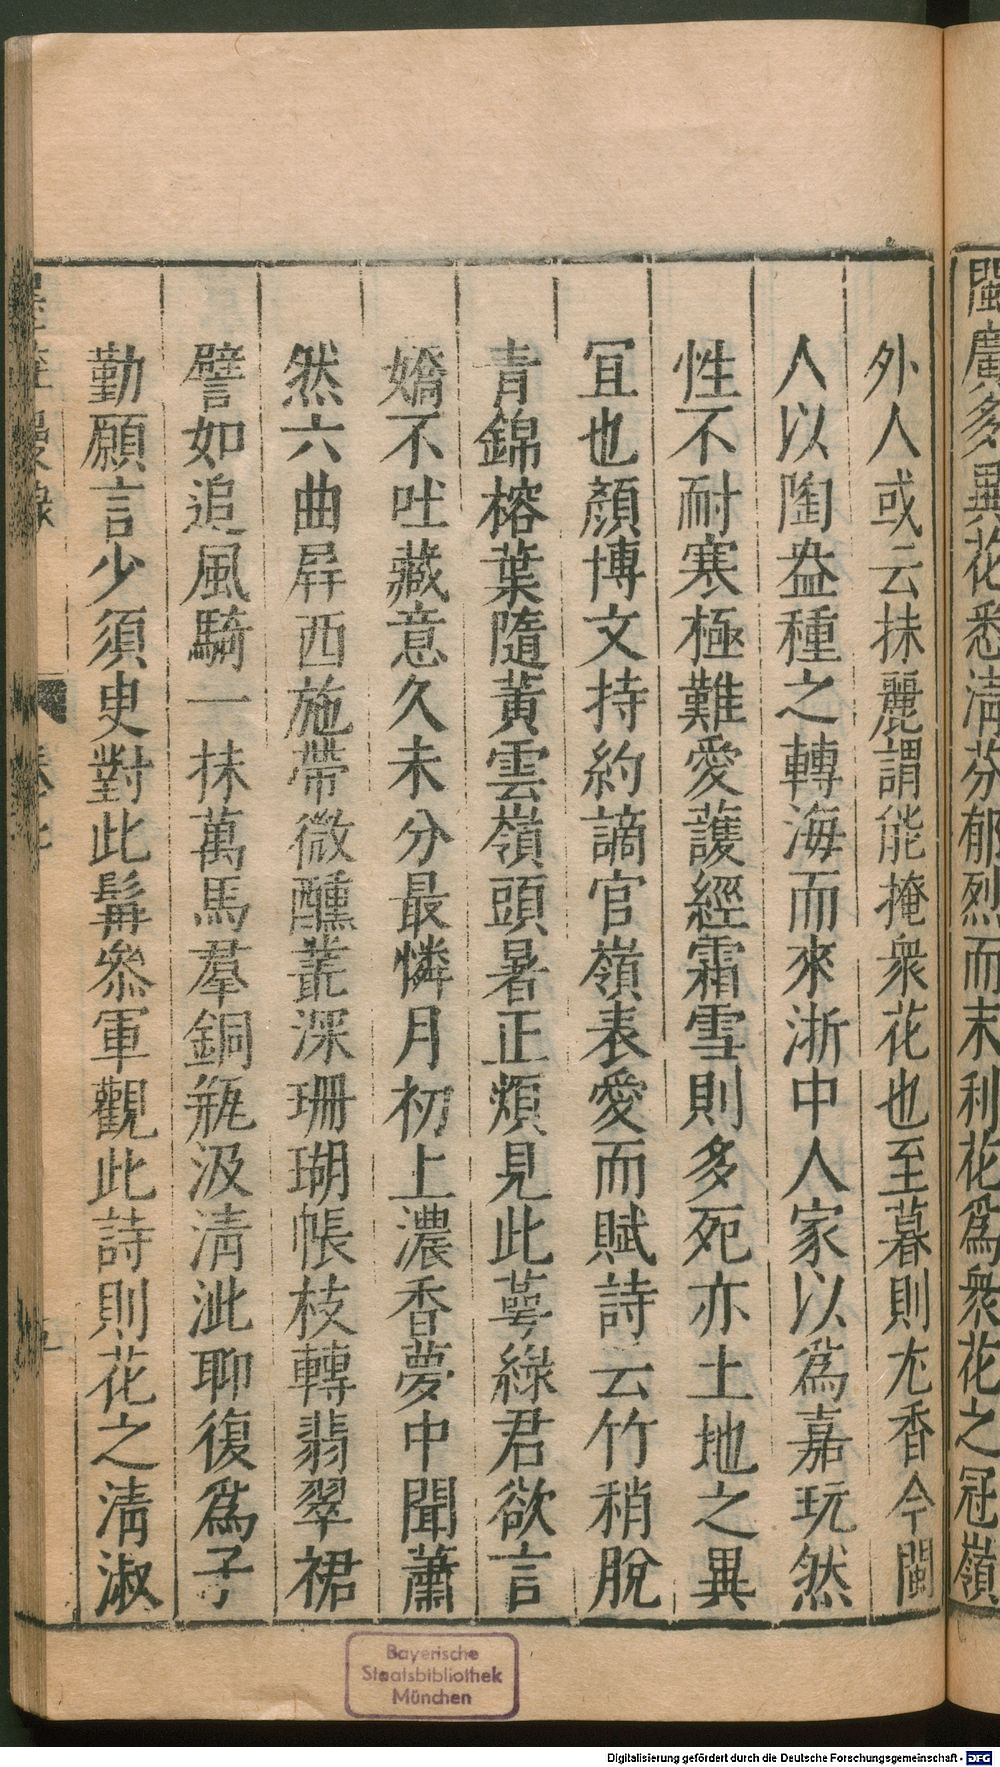 閩廣多異花悉淸芬郁烈而末利花爲衆花之冠嶺
外人或云抹麗謂能掩衆花也至暮則尤香今閩
人以陶盎種之轉海而來浙中人家以爲嘉玩然
性不耐寒極難愛護經霜雪則多死亦土地之異
冝也顏博文持約謫官嶺表愛而賦詩云竹稍脫
青錦榕葉隨黃雲嶺頭暑正煩見此萼綠君欲言
嬌不吐藏意久未分最憐月初上濃香夢中聞蕭
然六曲屛西施帶微醺叢深珊瑚帳枝轉翡翠裙
譬如追風騎一抹萬馬羣銅瓶汲淸泚聊復爲子
勤願言少須臾對此髯叅軍觀此詩則花之淸淑
墨莊漫錄
卷七
五
Bayerische
Staatsbibliothek
München
Digitalisierung gefördert durch die Deutsche Forschungsgemeinschaft - DFG